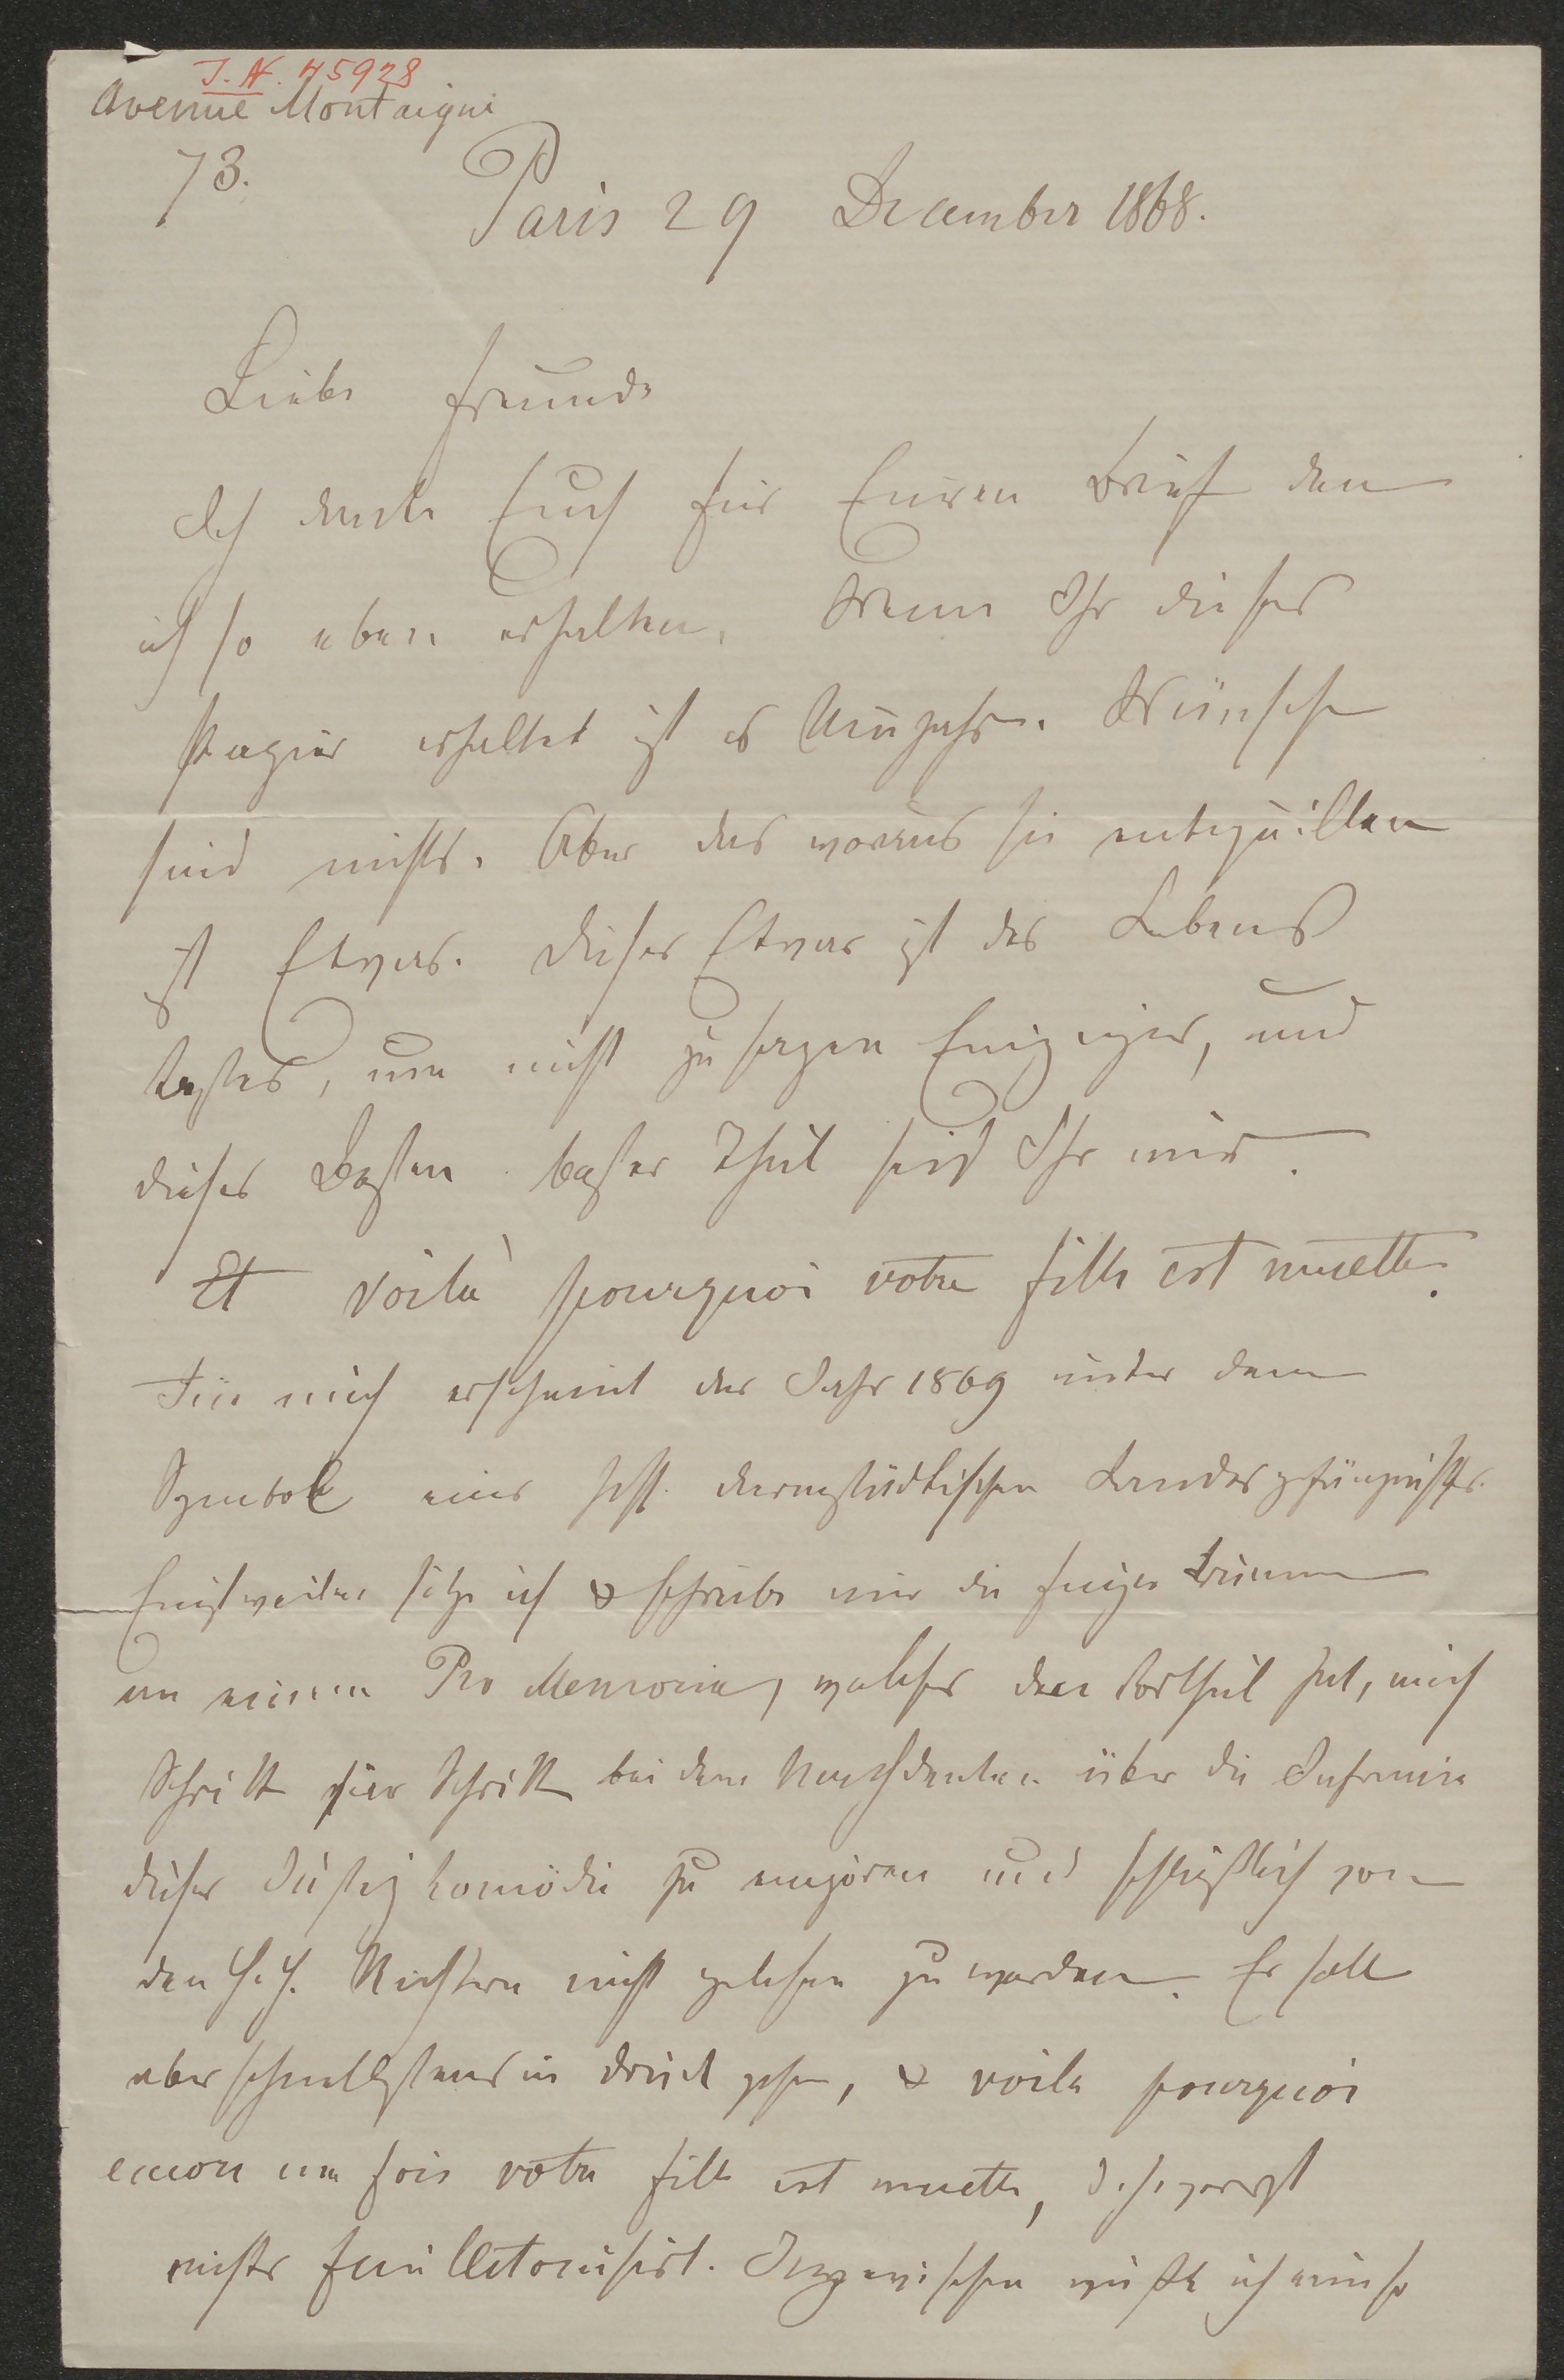 I. N. 45928
Avenue Montaigne
73.
Paris 29 December 1868.
Liebe Freunde
Ich danke Euch für Euren Brief den
ich so eben erhalten. Wenn Ihr dieses
Papier erhaltet ist es Neujahr. Wünsche
sind nichts. Aber das woraus sie entquillen
ist Etwas. Dieses Etwas ist des Lebens
bestes, um nicht zu sagen Einziges, und
dieses Besten bester Theil seid Ihr mir.
Et voilà pourquoi votre fille est muette.
Für mich erscheint das Jahr 1869 unter dem
Symbol eines hess. darmstädtischen Landesgefängnisses.
Einstweilen sitze ich & schreibe mir die Finger krumm
an einem Pro Memoria, welches den Vortheil hat, mich
Schritt für Schritt bei dem Nachdenken über die Infamie
dieser Justizkomödie zu empören und schließlich von
den H. H. Richtern nicht gelesen zu werden. Er soll
aber schnellstens in Druck gehen, & voila pourquoi
encore une fois votre fille est muette, d. h. zuerst
nichts feuilletonisirt. Inzwischen wüßte ich nun so